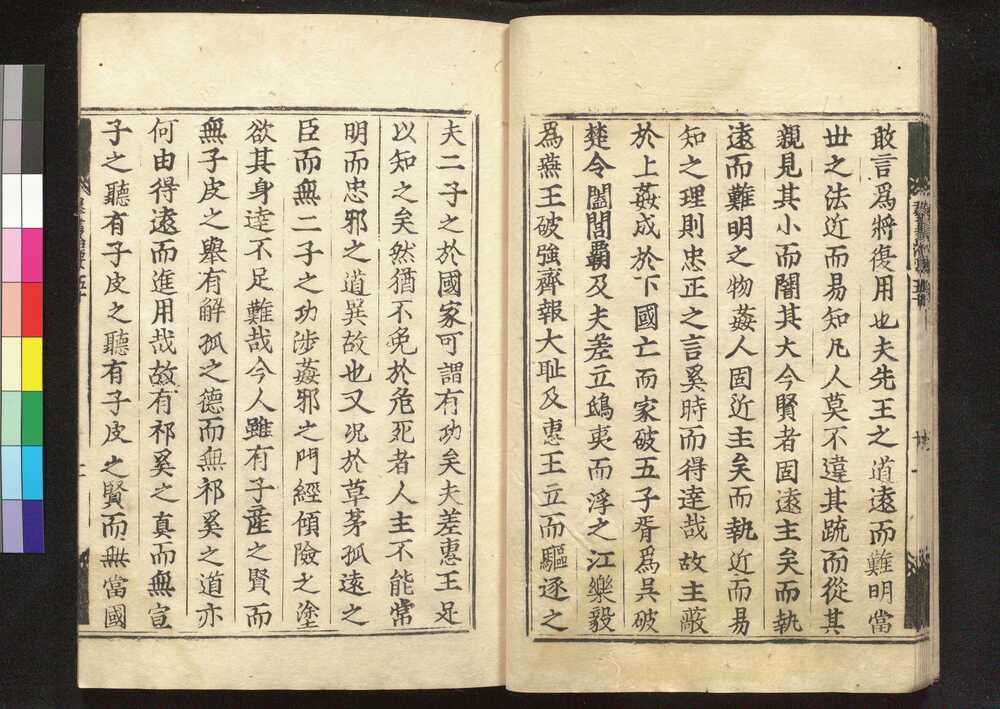 敢言爲將復用也夫先王之道遠而難明當
世之法近而易知凡人莫不違其䟽而從其
親見其小而闇其大今賢者固遠主矣而執
遠而難明之物姦人固近主矣而執近而易
知之理則忠正之言奚時而得達哉故主蔽
於上姦成於下國亡而家破五子胥爲吳破
楚令闔閭霸及夫差立鴟夷而浮之江樂毅
爲燕王破強齊報大耻及惠王立而驅逐之
夫二子之於國家可謂有功矣夫差惠王足
以知之矣然猶不免於危死者人主不能常
明而忠邪之道異故也又况於草茅孤遠之
臣而無二子之功涉姦邪之門經傾險之塗
欲其身達不足難哉今人雖有子産之賢而
無子皮之舉有解狐之德而無祁奚之直亦
何由得遠而進用哉故有祁奚之直而無宣
子之聽有子皮之賢而無當國